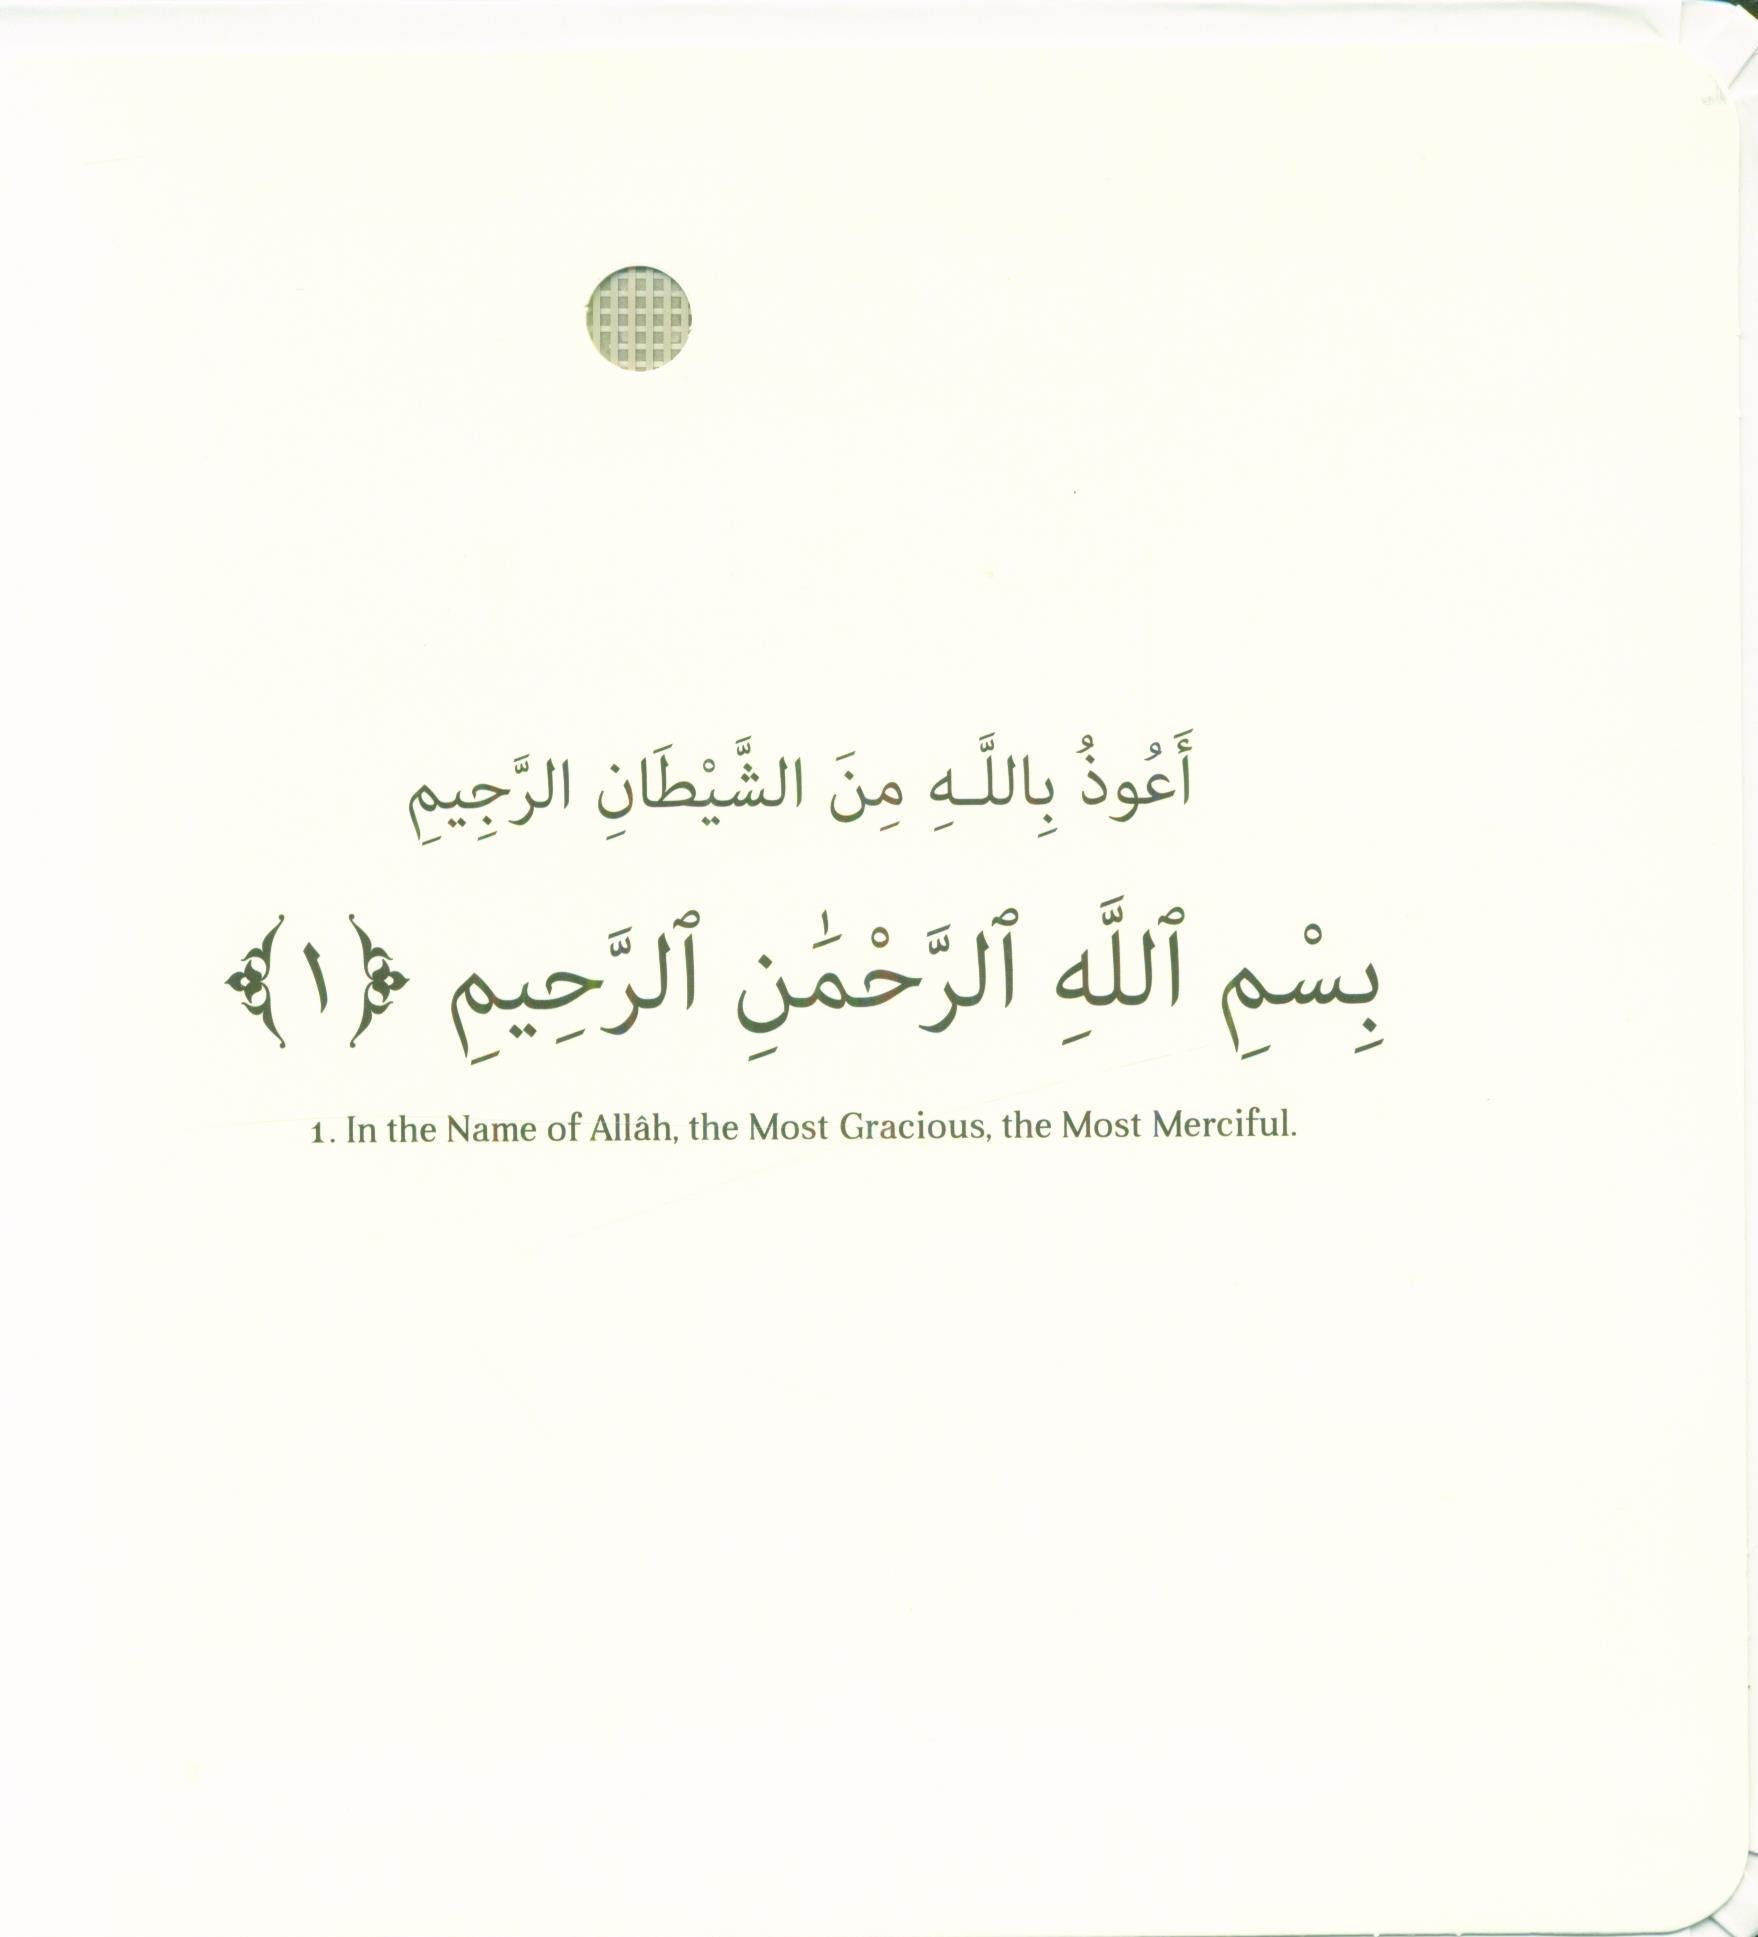 أَعُوذُ بِاللَّـهِ مِنَ الشَّيْطَانِ الرَّجِيمِ
بِسْمِ ٱللَّهِ ٱلرَّحْمَٰنِ ٱلرَّحِيمِ ﴿١﴾
1. In the Name of Allâh, the Most Gracious, the Most Merciful.